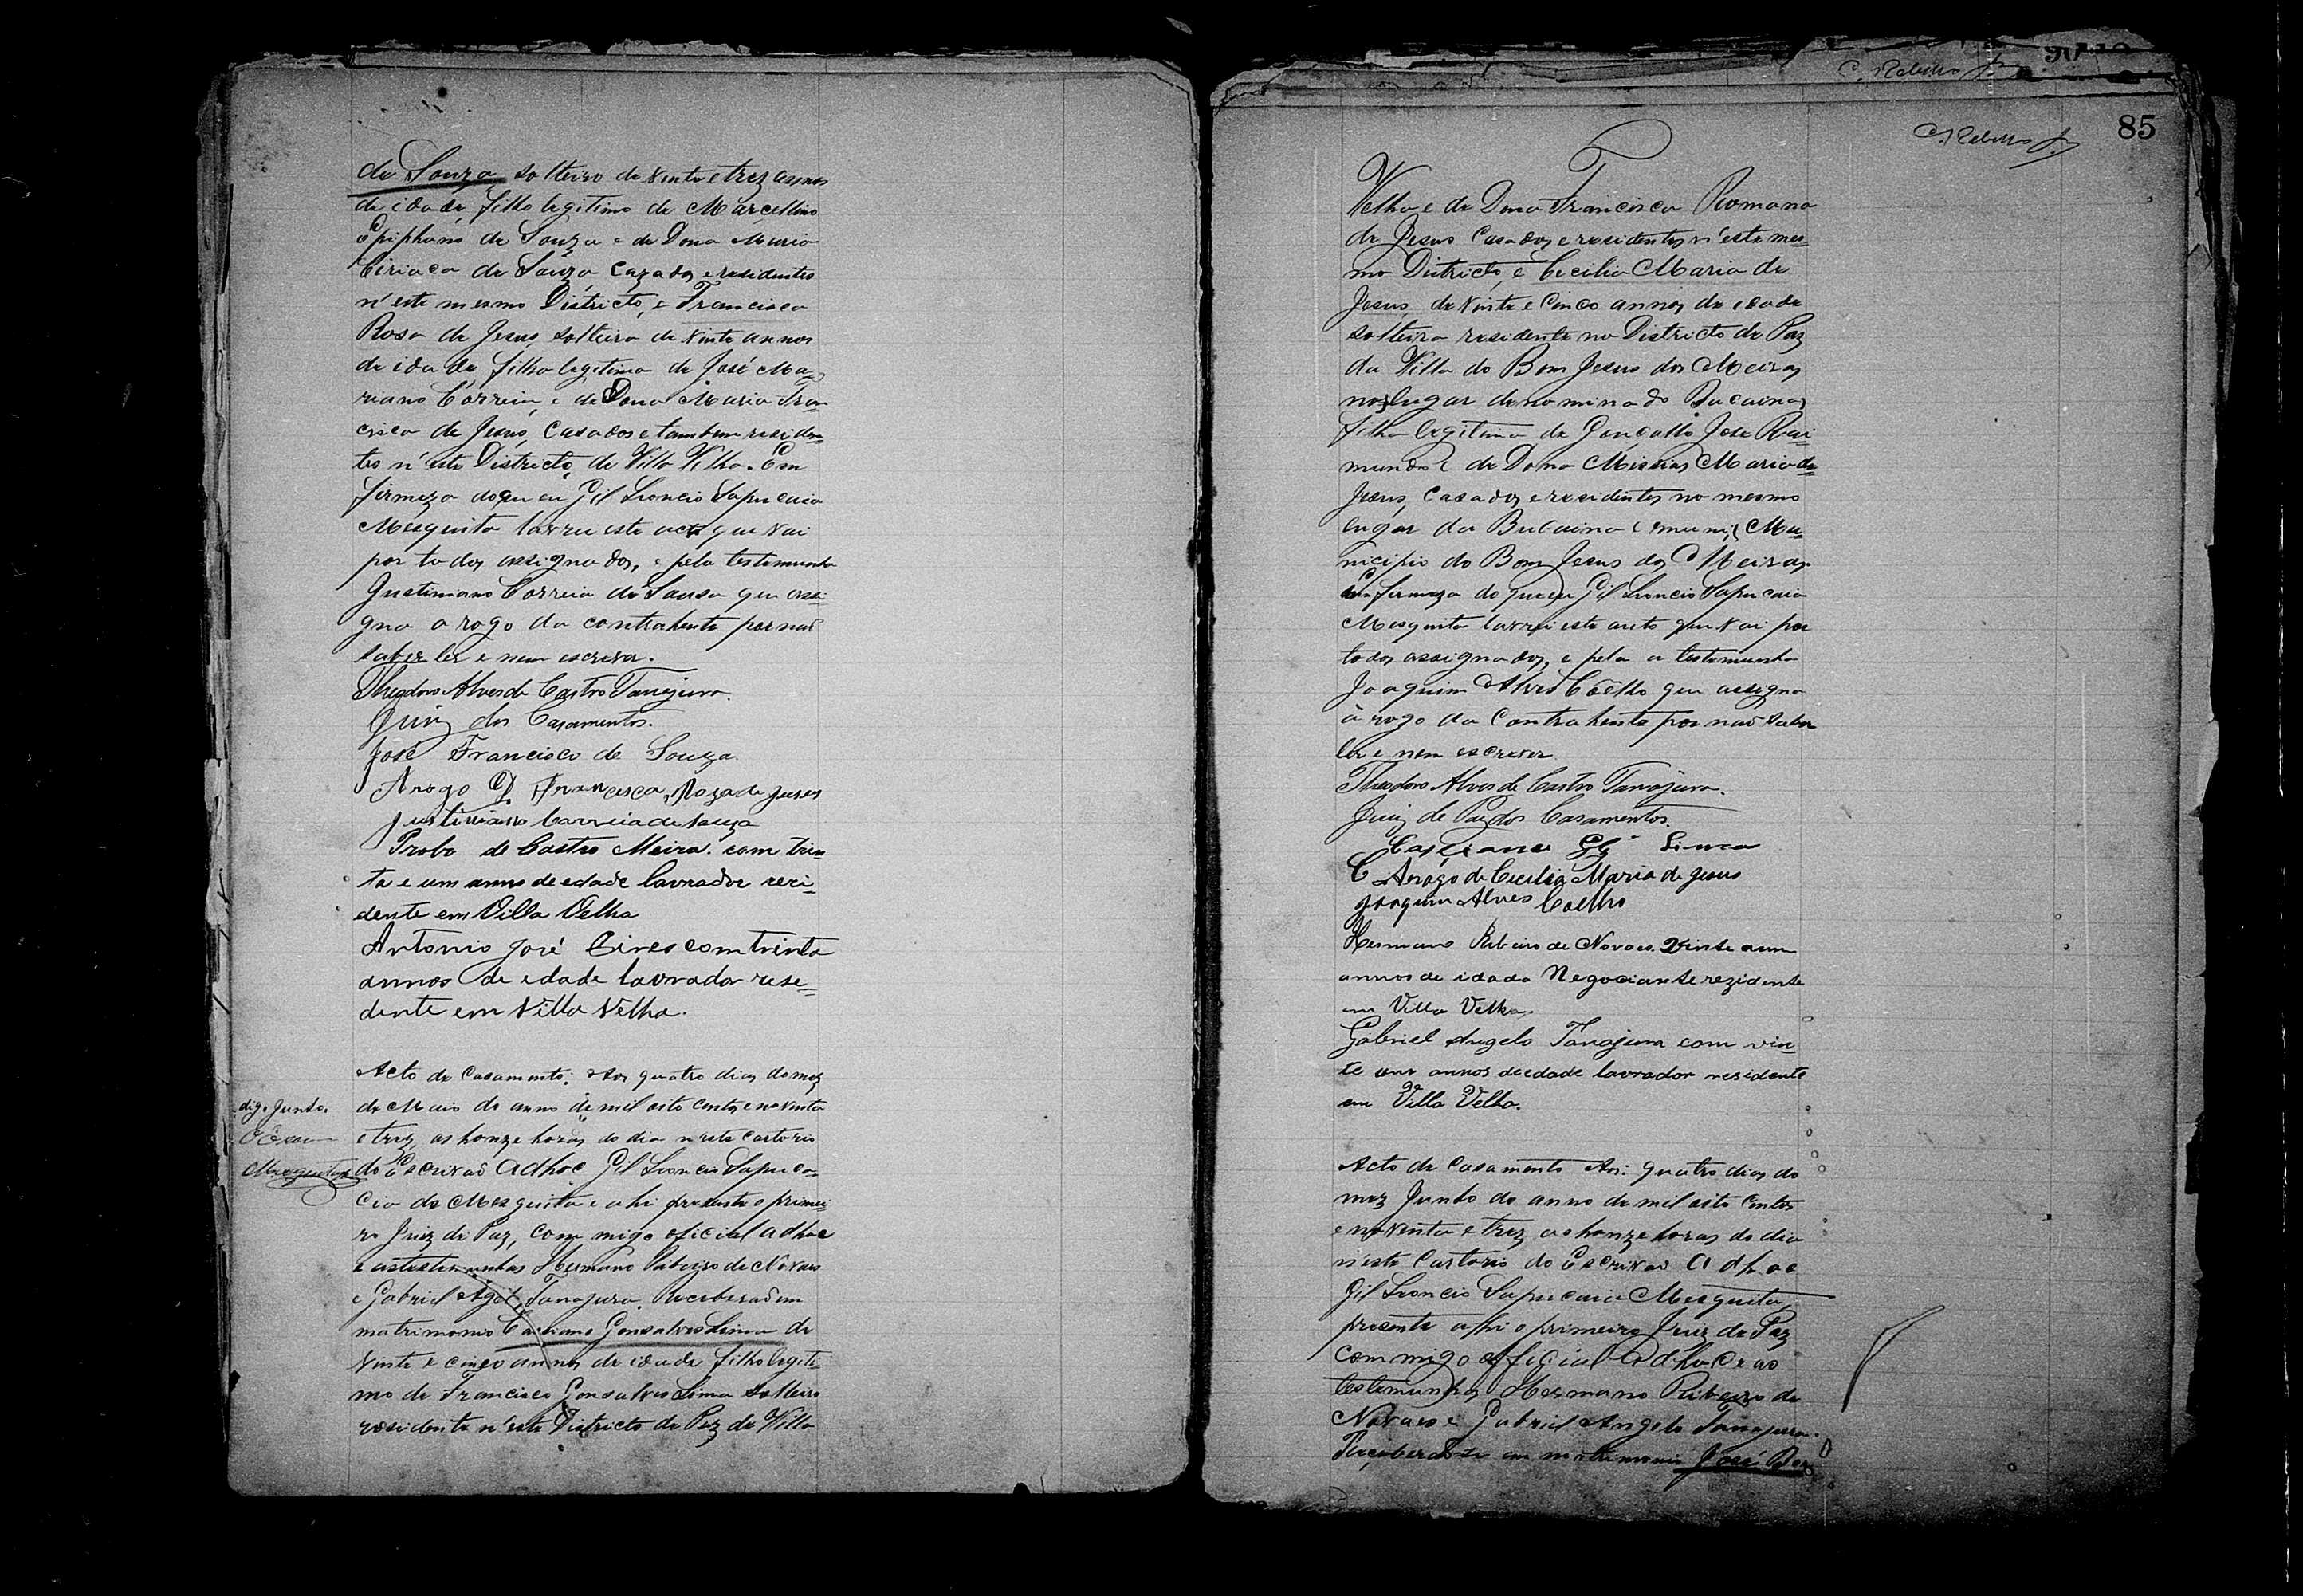 de Souza solteiro de vinte e trez annos
de idade, filho legitimo de Marcellino
Epiphanio de Souza e de Dona Maria
Ciriaca de Souza, Cazados, e residentes
n'este mesmo Districto, e Francisca
Rosa de Jesus, solteira de vinte annos
de idade filha legitima de José Ma-
riano Correia, e de Dona Maria Fran-
cisca de Jesus, Casados e tambem residen-
tes n'este Districto, de Villa Velha. Em
firmeza do que eu Gil Leoncio Sapucaia
Mesquita lavrei este acto que vai
por todos assignados, e pela testemunha
Justiniano Correia de Sousa que assi-
gna a rogo da contrahente por não
saber ler e nem escrever.
Theodoro Alves de Castro Tanajura.
Juiz dos Casamentos.
José Francisco de Souza
Arogo D. Francisca Roza de Jesus
Justiniano Correia de Souza
Probo de Castro Meira. com trin-
ta e um annos de edade lavrador rezi-
dente em Villa Velha
Antonio José Pires com trinta
annos de edade lavrador resi-
dente em Villa Velha.
Acto de Casamento. Aos quatro dias do mez
de Maio do anno de mil oito centos e noventa
e trez, as honze horas do dia neste Cartorio
do Escrivão Adhoc Gil Leoncio Sapuca-
cia de Mesquita e ahi presente o primei-
ro Juiz de Paz, com migo oficial adhoc
e as testemunhas Hermano Ribeiro de Novaes
e Gabriel Tanajura. Receberaõ em
matrimonio Casiano Gonsalves Lima de
vinte e cinco annos de idade filho legiti-
mo de Francisco Gonsalves Lima solteiro
residente n'este Districto de Paz de Villa
digo Junho.
Mesquita
85
Velha e de Dona Francisca Romana
de Jesus Casados, e residentes n'este mes-
mo Districto, e Cecilia Maria de
Jesus, de vinte e cinco annos de idade
solteira residente no Districto de Paz
da Villa do Bom Jesus dos Meiras
no lugar denominado
filha legitima de Gonçallo José Rai-
mundo e de Dona Messias Maria de
Jesus, Casados, e residentes no mesmo
lugar da Mu-
nicipio do Bom Jesus dos Meiras.
Em firmeza do que eu Gil Leoncio Sapucaia
Mesquita lavrei este aucto que vai por
todos assignados, e pela a testemunha
Joaquim Alves Coêlho que assigna
à rogo da Contrahente por não saber
ler e nem escrever
Theodoro Alves de Castro Tanajura.
Juiz de Paz dos Casamentos.
Lima
Arogo de Cecilia Maria de Jesus
Joaquim Alves Coelho
Hermano Ribeiro de Novaes. Vinte e um
annos de idade Negociante rezidente
em Villa Velha.
Gabriel Angelo Tanajura com vin-
te um annos de edade lavrador residente
em Villa Velha.
Acto de Casamento Aos quatro dias do
mez Junho do anno de mil oito centos
e noventa e trez, as honze horas do dia
n'este Cartorio do Escrivão Adhoc
Gil Leoncio Sapucaia Mesquita,
presente ahi o primeiro Juiz de Paz
com migo official Adhoc e as
testemunhas Hermano Ribeiro de
Novaes e Gabriel Angelo Tanajura.
Receberaõ-se em matrimonio José